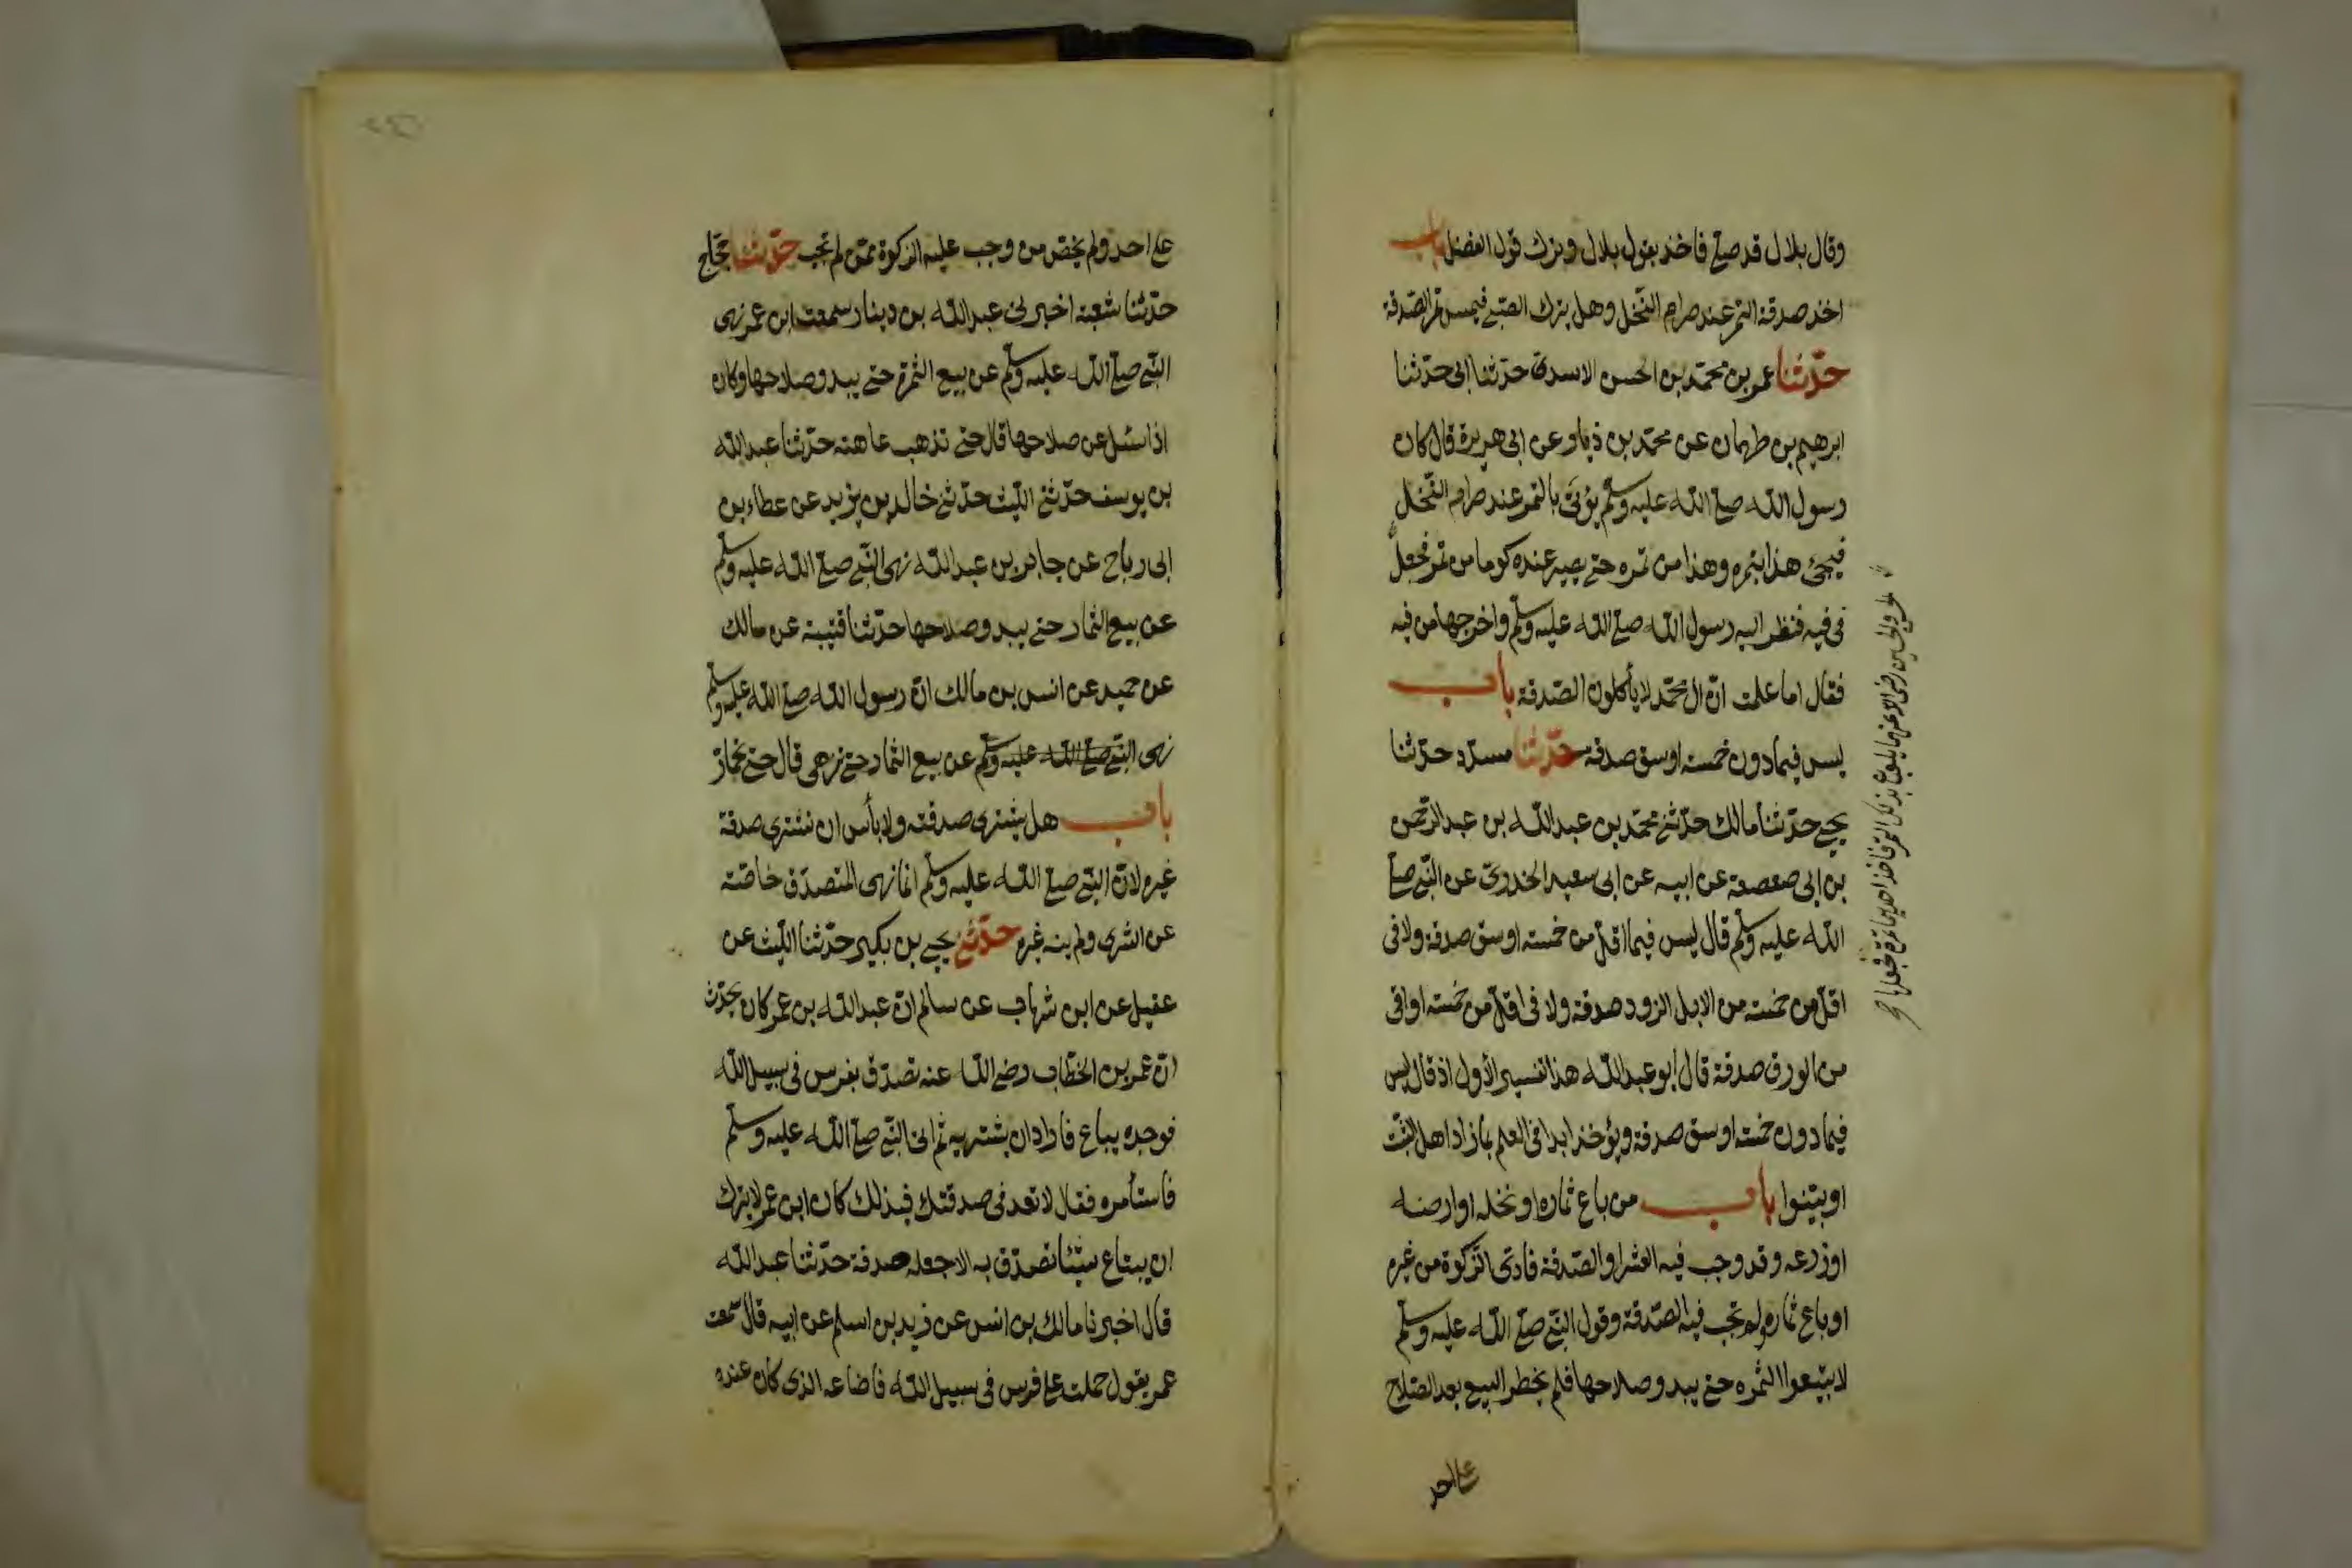 وقال بلال قد صلى فاخذ بقول بلال وترك قول الفضل باب
اخذ صدقة التمر عند صرام النخل وهل يترك الصبى فيمس تمر الصدقة
حدّثنا عمر بن محمّد بن الحسن الاسدى حدّثنا ابى حدّثنا
ابرهيم بن طهمان عن محمّد بن زياد عن ابى هريرة قال كان
رسول الله صلى الله عليه وسلّم يؤتى بالتمر عند صرام النّخل
فيجئ هذا بتمره وهذا من تمره حتى يصير عنده كوما من تمر فجعل
فى فيه فنظر اليه رسول الله صلى الله عليه وسلّم واخرجها من فيه
فقال اما علمت انّ ال محمّد لا يأكلون الصّدقة باب
ليس فيما دون خمسة اوسق صدقة حدّثنا مسدّد حدّثنا
يحيى حدّثنا مالك حدّثنى محمّد بن عبد الله بن عبد الرّحمن
بن ابى صعصعة عن ابيه عن ابى سعيد الخدرى عن النّبى صلى
الله عليه وسلّم قال ليس فيما اقلّ من خمسة اوسق صدقة ولا فى
اقلّ من خمسة من الابل الزود صدقة ولا فى اقلّ من خمسة اواقى
من الورق صدقة قال ابو عبد الله هذا تفسير الأول اذ قال ليس
فيما دون خمسة اوسق صدقة ويؤخذ ابدا فى العلم بما زاد اهل الثّبت
او بيّنوا باب من باع ثماره او نخله او ارضه
او زرعه وقد وجب فيه العشر او الصّدقة فادّى الزّكوة من غيره
او باع ثماره ولم تجب فيه الصّدقة وقول النّبى صلى الله عليه وسلّم
لا تبيعوا الثمره حتى يبدو صلاحها فلم يخطر البيع بعد الصّلاح
على احد
والحسين رضى الله عنهما يلعبان بذلك التمر فاخذ احدهما تمرة فجعلها
على احد ولم يخصّ من وجب عليه الزكوة ممّن لم تجب حدّثنا حجّاج
حدّثنا شعبة اخبرنى عبد الله بن دينار سمعت ابن عمر نهى
النّبى صلى الله عليه وسلّم عن بيع الثمرة حتى يبدو صلاحها وكان
اذا سئل عن صلاحها قال حتى تذهب عاهته حدّثنا عبد الله
بن يوسف حدّثنى اللّيث حدّثنى خالد بن يزيد عن عطاء بن
ابى رباح عن جابر بن عبد الله نهى النّبى صلى الله عليه وسلّم
عن بيع الثمار حتى يبدو صلاحها حدّثنا قتيبة عن مالك
عن حميد عن انس بن مالك انّ رسول الله صلى الله عليه وسلّم
نهى النّبى صلى الله عليه وسلّم عن بيع الثمار حتى تزهى قال حتى تحمارّ
باب هل يشترى صدقته ولا بأس ان تشترى صدقة
غيره لانّ النّبى صلى الله عليه وسلّم انما نهى المتصدّق خاصّة
عن الشرى ولم ينه غيره حدّثنى يحيى بن بكير حدّثنا اللّيث عن
عقيل عن ابن شهاب عن سالم انّ عبد الله بن عمر كان يحدّث
انّ عمر بن الخطّاب رضى الله عنه تصدّق بفرس فى سبيل الله
فوجده يباع فاراد ان يشتريه ثم اتى النّبى صلى الله عليه وسلّم
فاستأمره فقال لا تعد فى صدقتك فبذلك كان ابن عمر لا يترك
ان يبتاع شيئا تصدّق به الا جعله صدقة حدّثنا عبد الله
قال اخبرنا مالك بن انس عن زيد بن اسلم عن ابيه قال سمعت
عمر يقول حملت على فرس فى سبيل الله فاضاعه الذى كان عنده